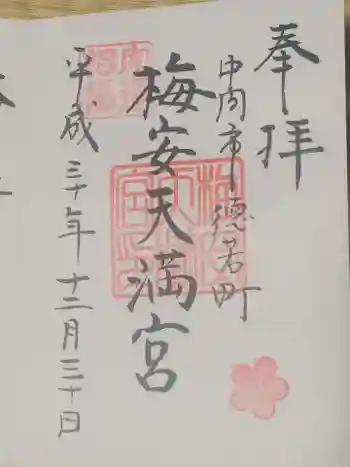 奉拝
中間市徳若町
梅安天満宮
平成三十年十二月三十日